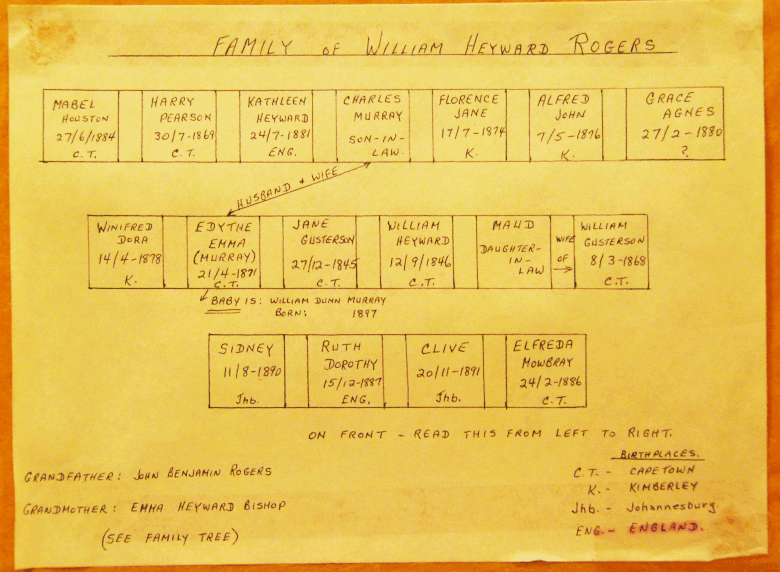 FAMILY OF WILLIAM HEYWARD ROGERS
MABEL
HOUSTON
27/6/1884
C.T.
HARRY
PEARSON
30/7-1869
C.T.
KATHLEEN
HEYWARD
24/7-1881
ENG.
CHARLES
MURRAY
SON-IN-
LAW.
FLORENCE
JANE
17/7-1874
K.
ALFRED
JOHN
7/5-1876
K.
GRACE
AGNES
27/2-1880
?
HUSBAND & WIFE
WINIFRED
DORA
14/4-1878
K.
EDYTHE
EMMA
(MURRAY)
21/4-1871
C.T.
JANE
GUSTERSON
27/12-1845
C.T.
WILLIAM
HEYWARD
12/9/1846
C.T.
MAUD
DAUGHTER-
IN-
LAW
WIFE
OF
WILLIAM
GUSTERSON
8/3-1868
C.T.
BABY IS: WILLIAM DUNN MURRAY
BORN: 1897
SIDNEY
11/8-1890
Jhb.
RUTH
DOROTHY
15/12-1887
ENG.
CLIVE
20/11-1891
Jhb.
ELFREDA
MOWBRAY
24/2-1886
C.T.
ON FRONT - READ THIS FROM LEFT TO RIGHT.
BIRTHPLACES.
C.T. - CAPETOWN
K. - KIMBERLEY
Jhb. - Johannesburg.
ENG. - ENGLAND.
GRANDFATHER: JOHN BENJAMIN ROGERS
GRANDMOTHER: EMMA HEYWARD BISHOP
(SEE FAMILY TREE)